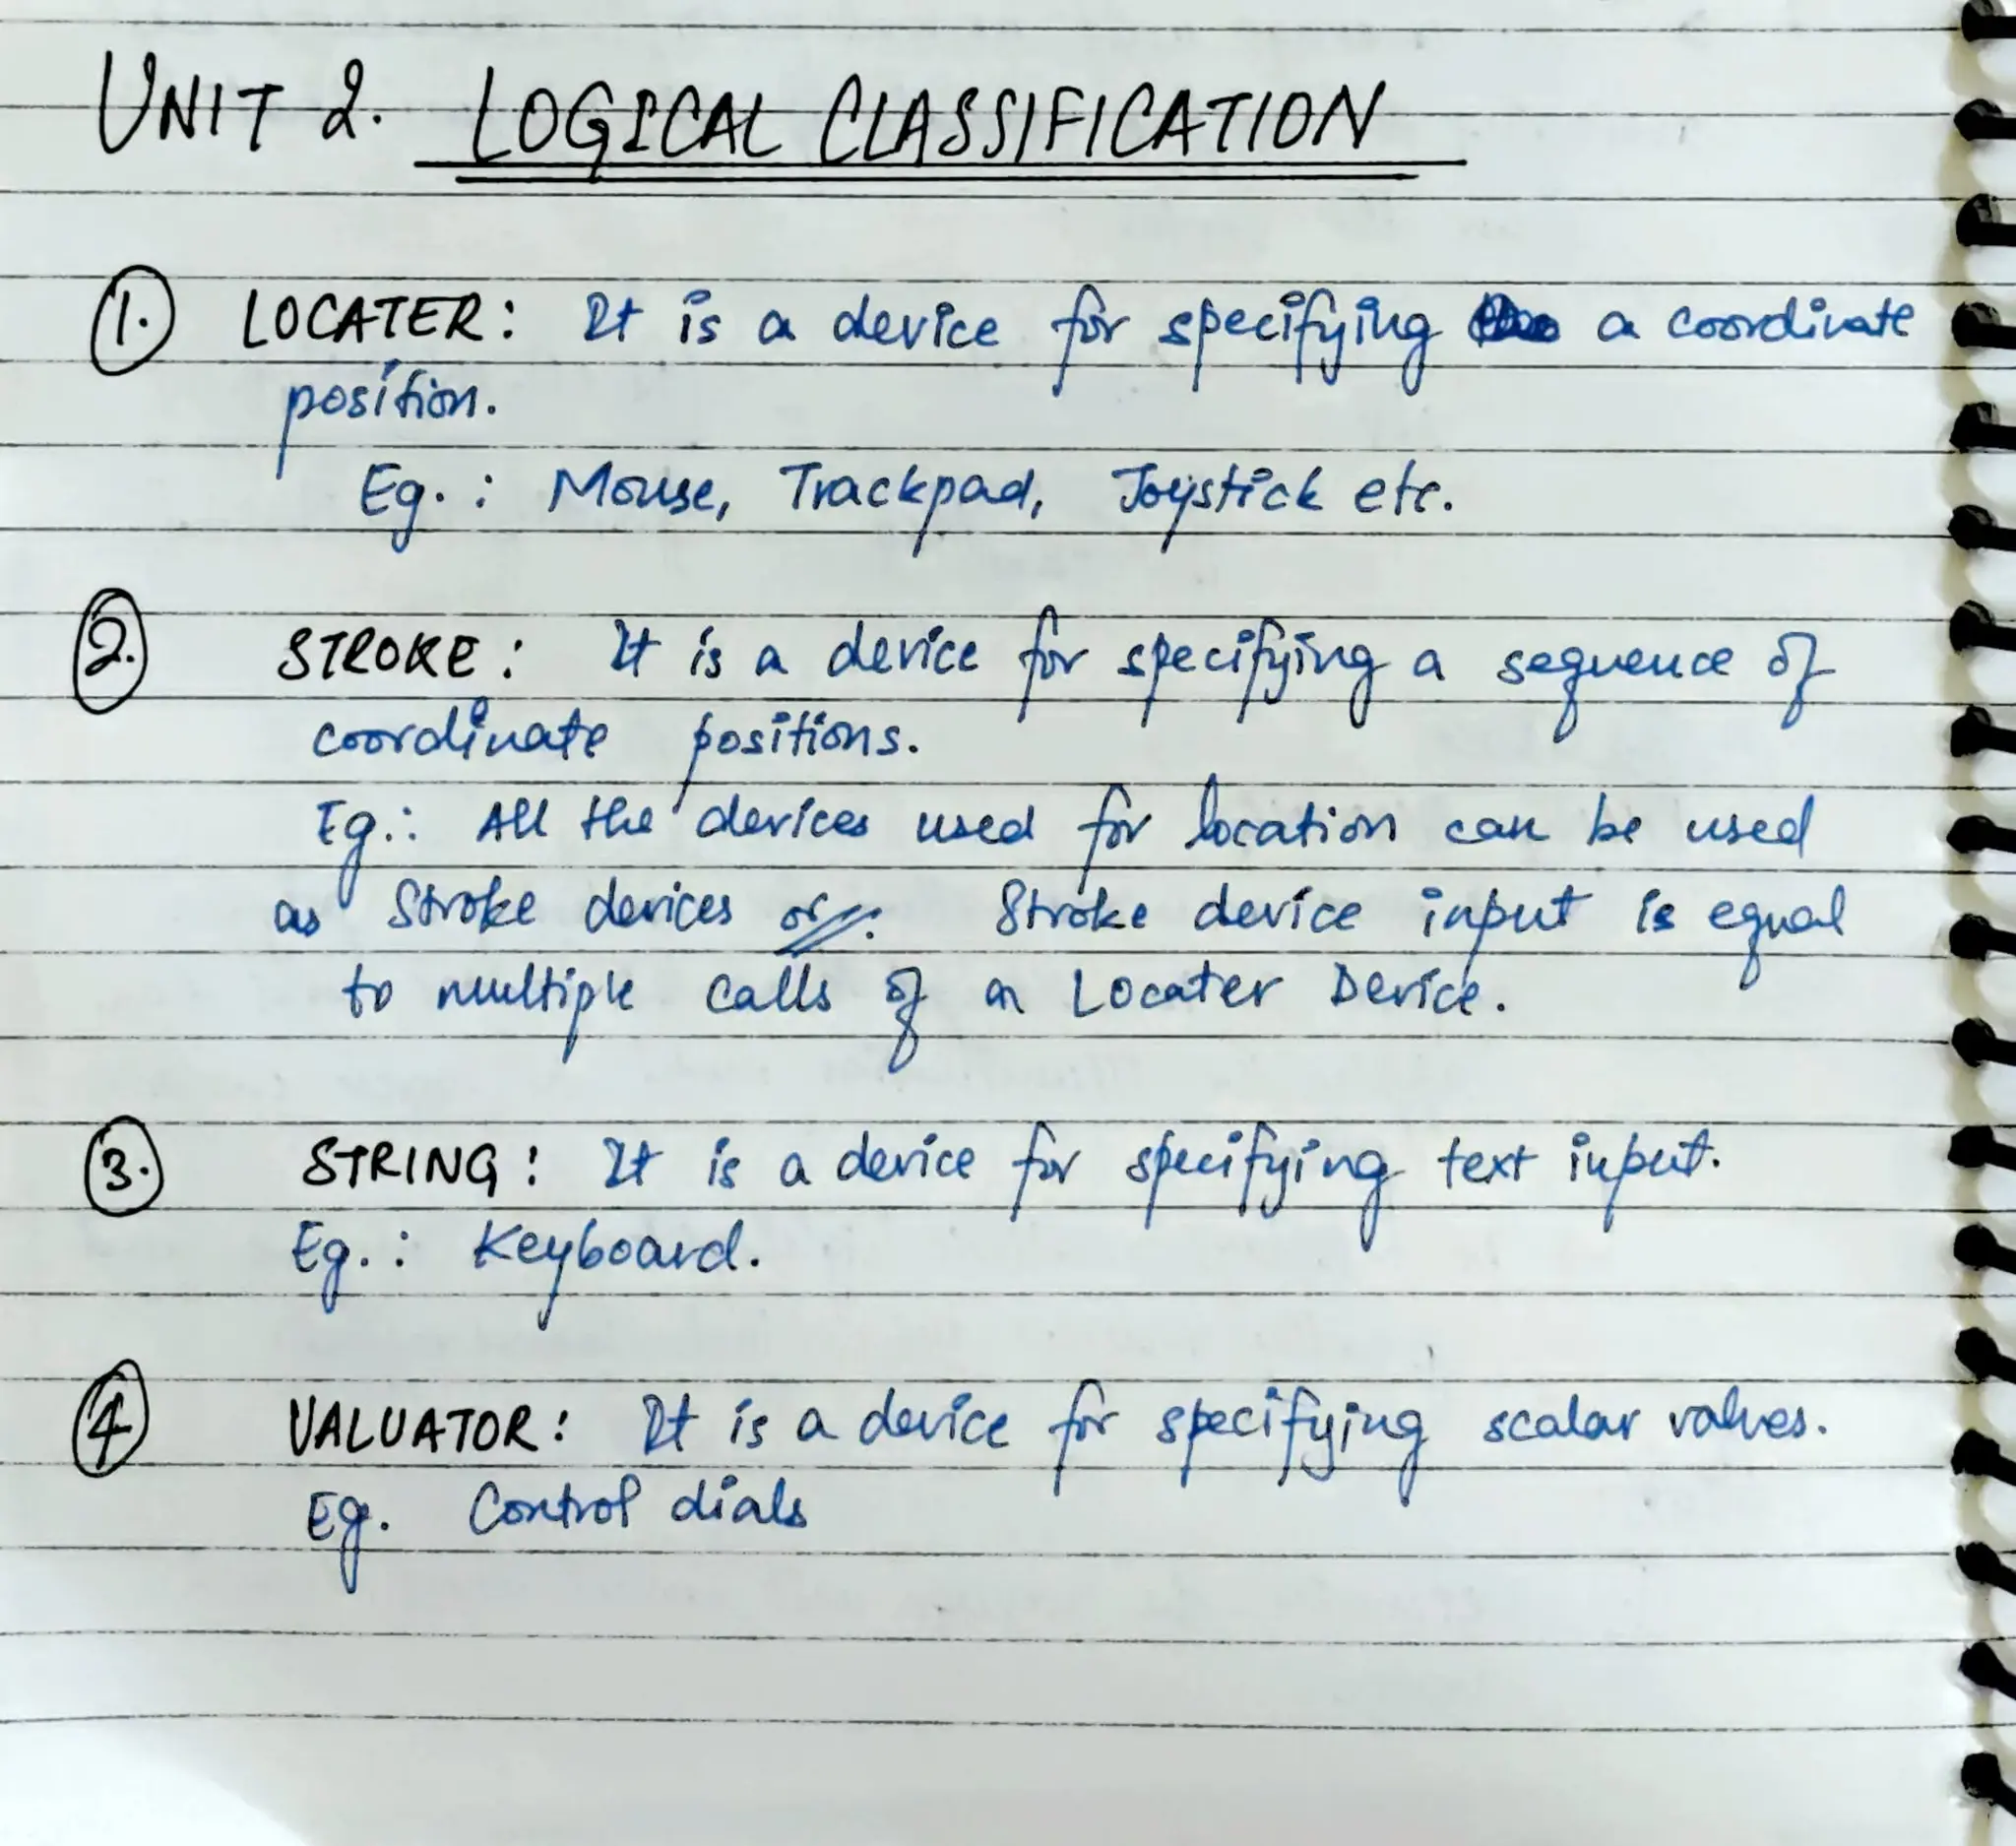 UNIT 2. LOGICAL CLASSIFICATION
1. LOCATER: It is a device for specifying a coordinate
position.
Eg. : Mouse, Trackpad, Joystick etc.
2. STROKE: It is a device for specifying a sequence of
coordinate positions.
Eg.: All the devices used for location can be used
as Stroke devices or: Stroke device input is equal
to multiple calls of a Locater Device.
3. STRING: It is a device for specifying text input.
Eg. : Keyboard.
4 VALUATOR: It is a device for specifying scalar values.
Eg. Control dials